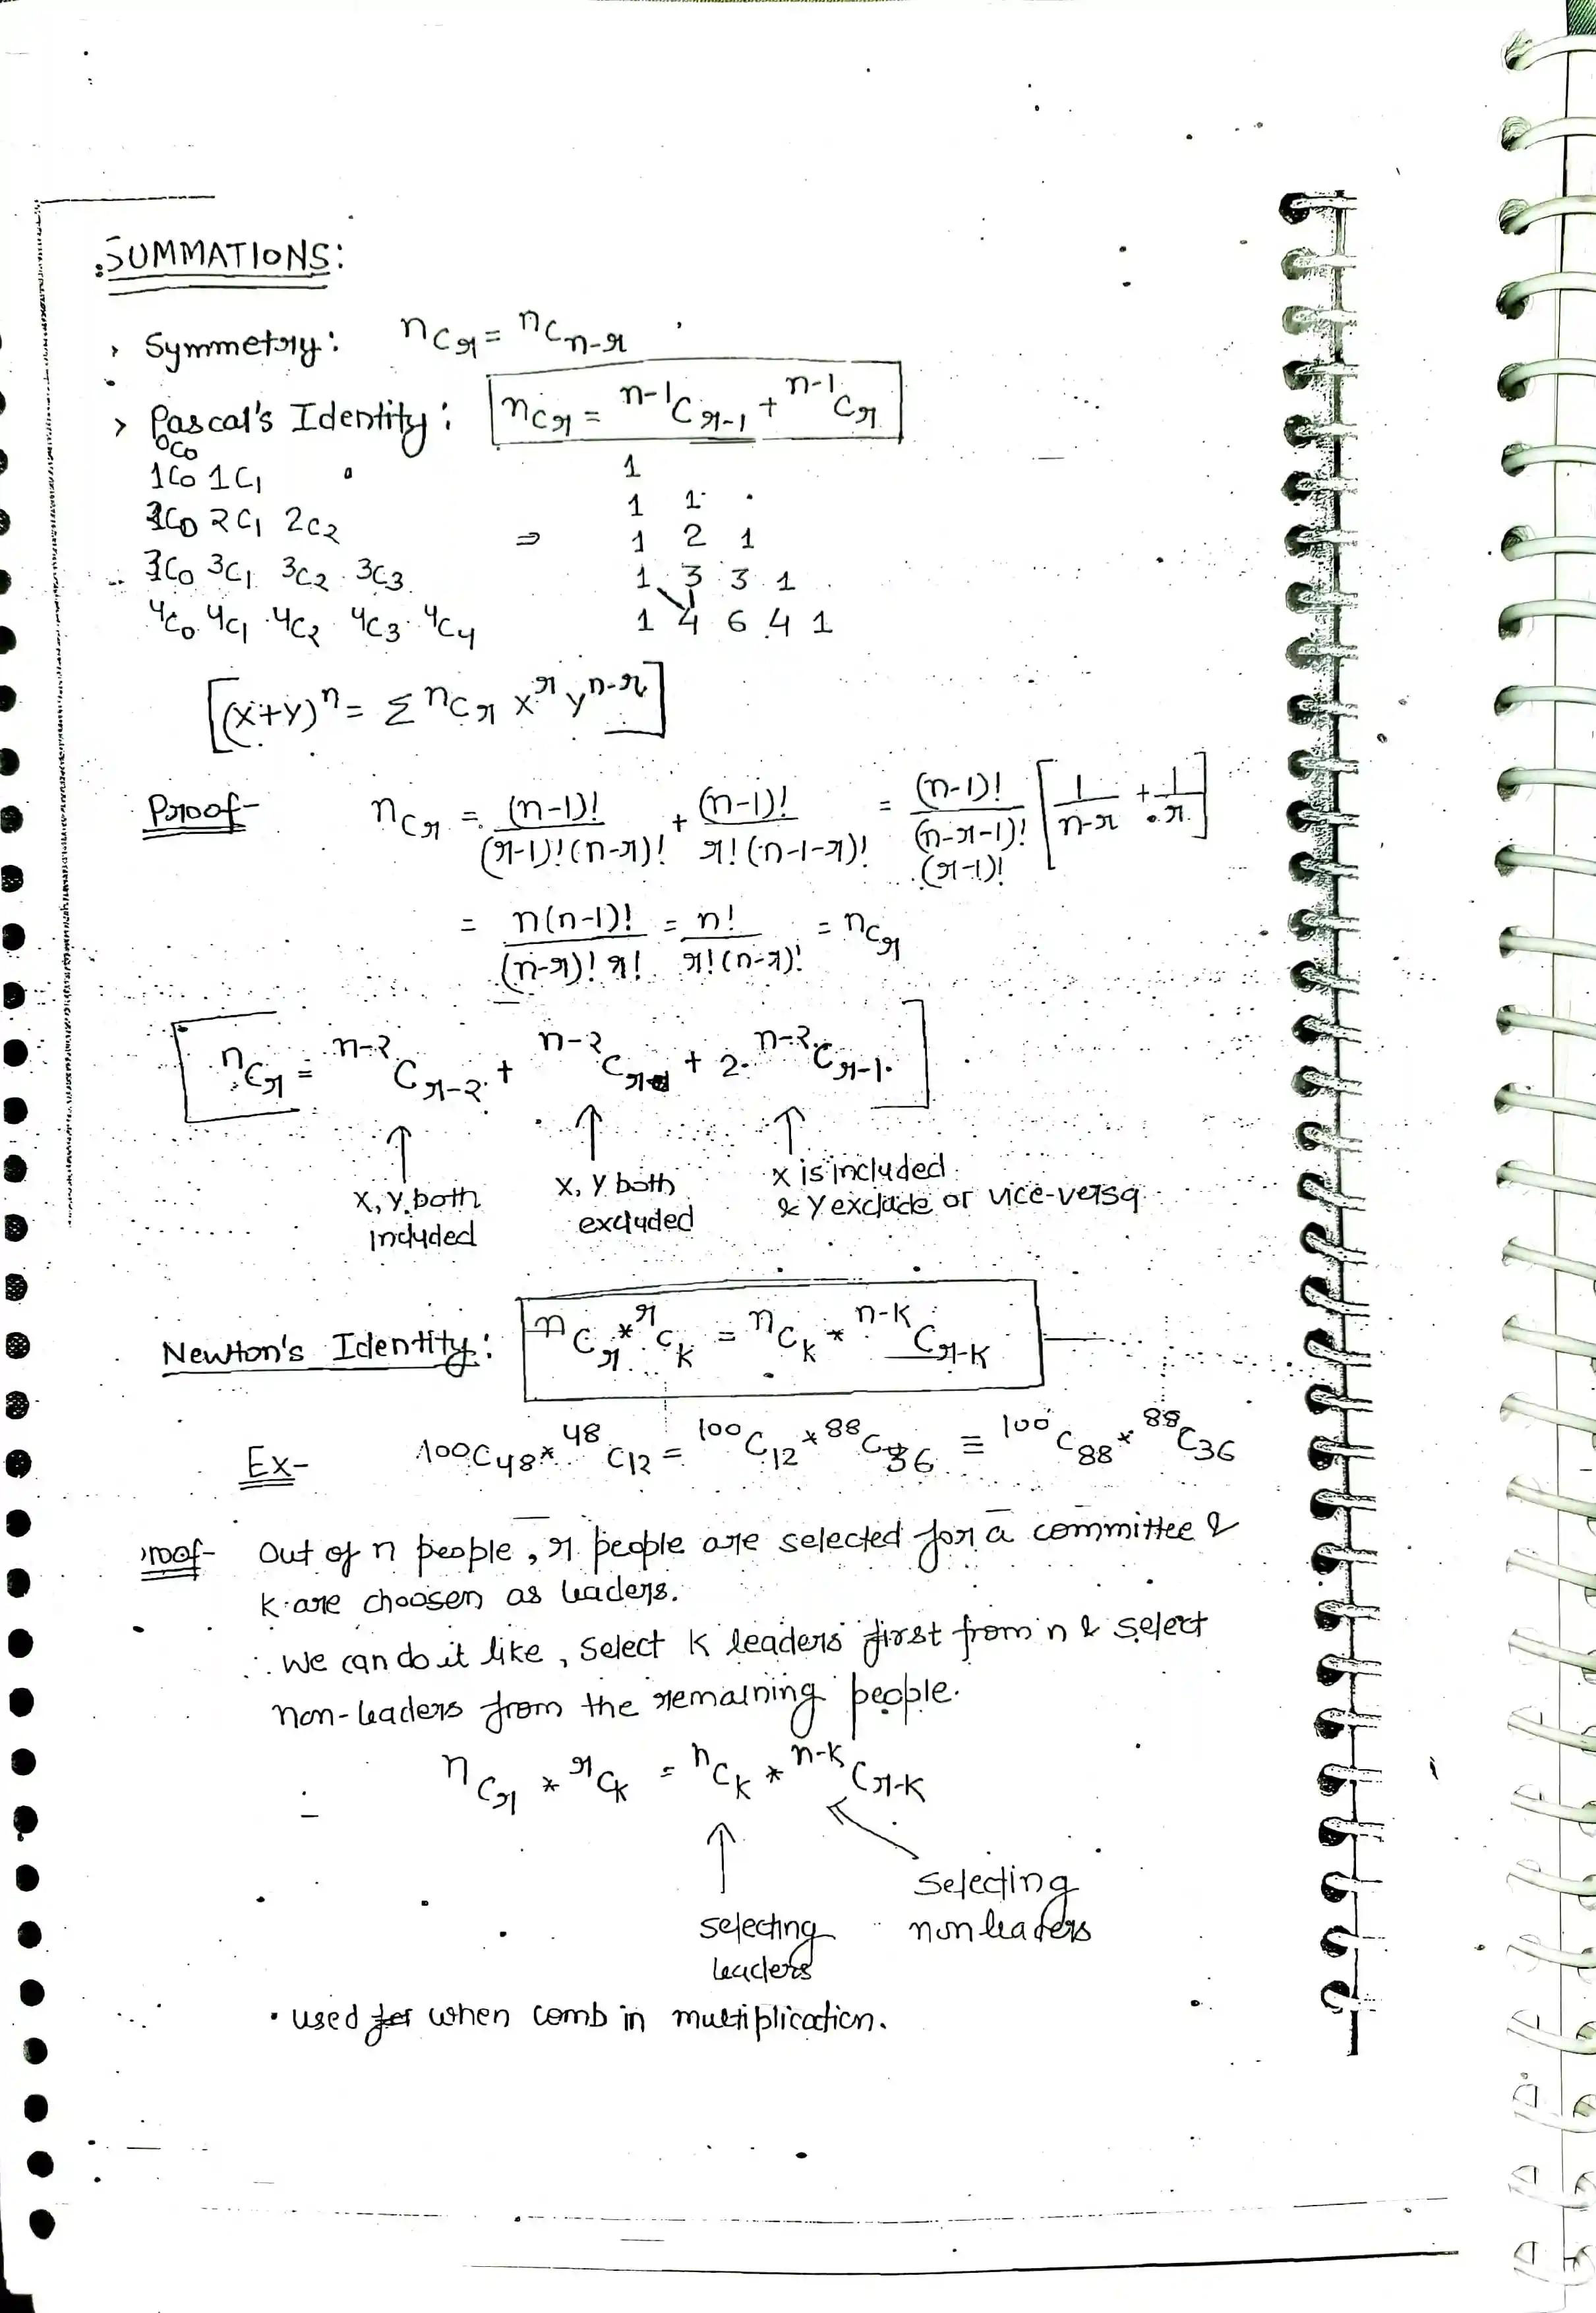 SUMMATIONS:
> Symmetry: nCr = nCn-r
> Pascal's Identity: nCr = n-1Cr-1 + n-1Cr
0C0 1
1C0 1C1 1 1
2C0 2C1 2C2 ⇒ 1 2 1
3C0 3C1 3C2 3C3 1 3 3 1
4C0 4C1 4C2 4C3 4C4 1 4 6 4 1
[(x+y)^n = Σ nCr x^r y^n-r]
Proof- nCr = (n-1)!/(r-1)!(n-r)! + (n-1)!/r!(n-1-r)! = (n-1)!/(n-r-1)!(r-1)! [1/n-r + 1/r]
= n(n-1)!/(n-r)! r! = n!/r!(n-r)! = nCr
[nCr = n-2Cr-2 + n-2Cr + 2. n-2Cr-1]
↑ ↑ ↑
x, y both included x, y both excluded x is included & y exclude or vice-versa
Newton's Identity: nCr * rCk = nCk * n-kCr-k
Ex- 100C48 * 48C12 = 100C12 * 88C36 = 100C88 * 88C36
roof- Out of n people, r people are selected for a committee &
k are choosen as leaders.
∴ We can do it like, select k leaders first from n & select
non-leaders from the remaining people.
nCr * rCk = nCk * n-kCr-k
selecting leaders
selecting non leaders
• used when comb in multiplication.